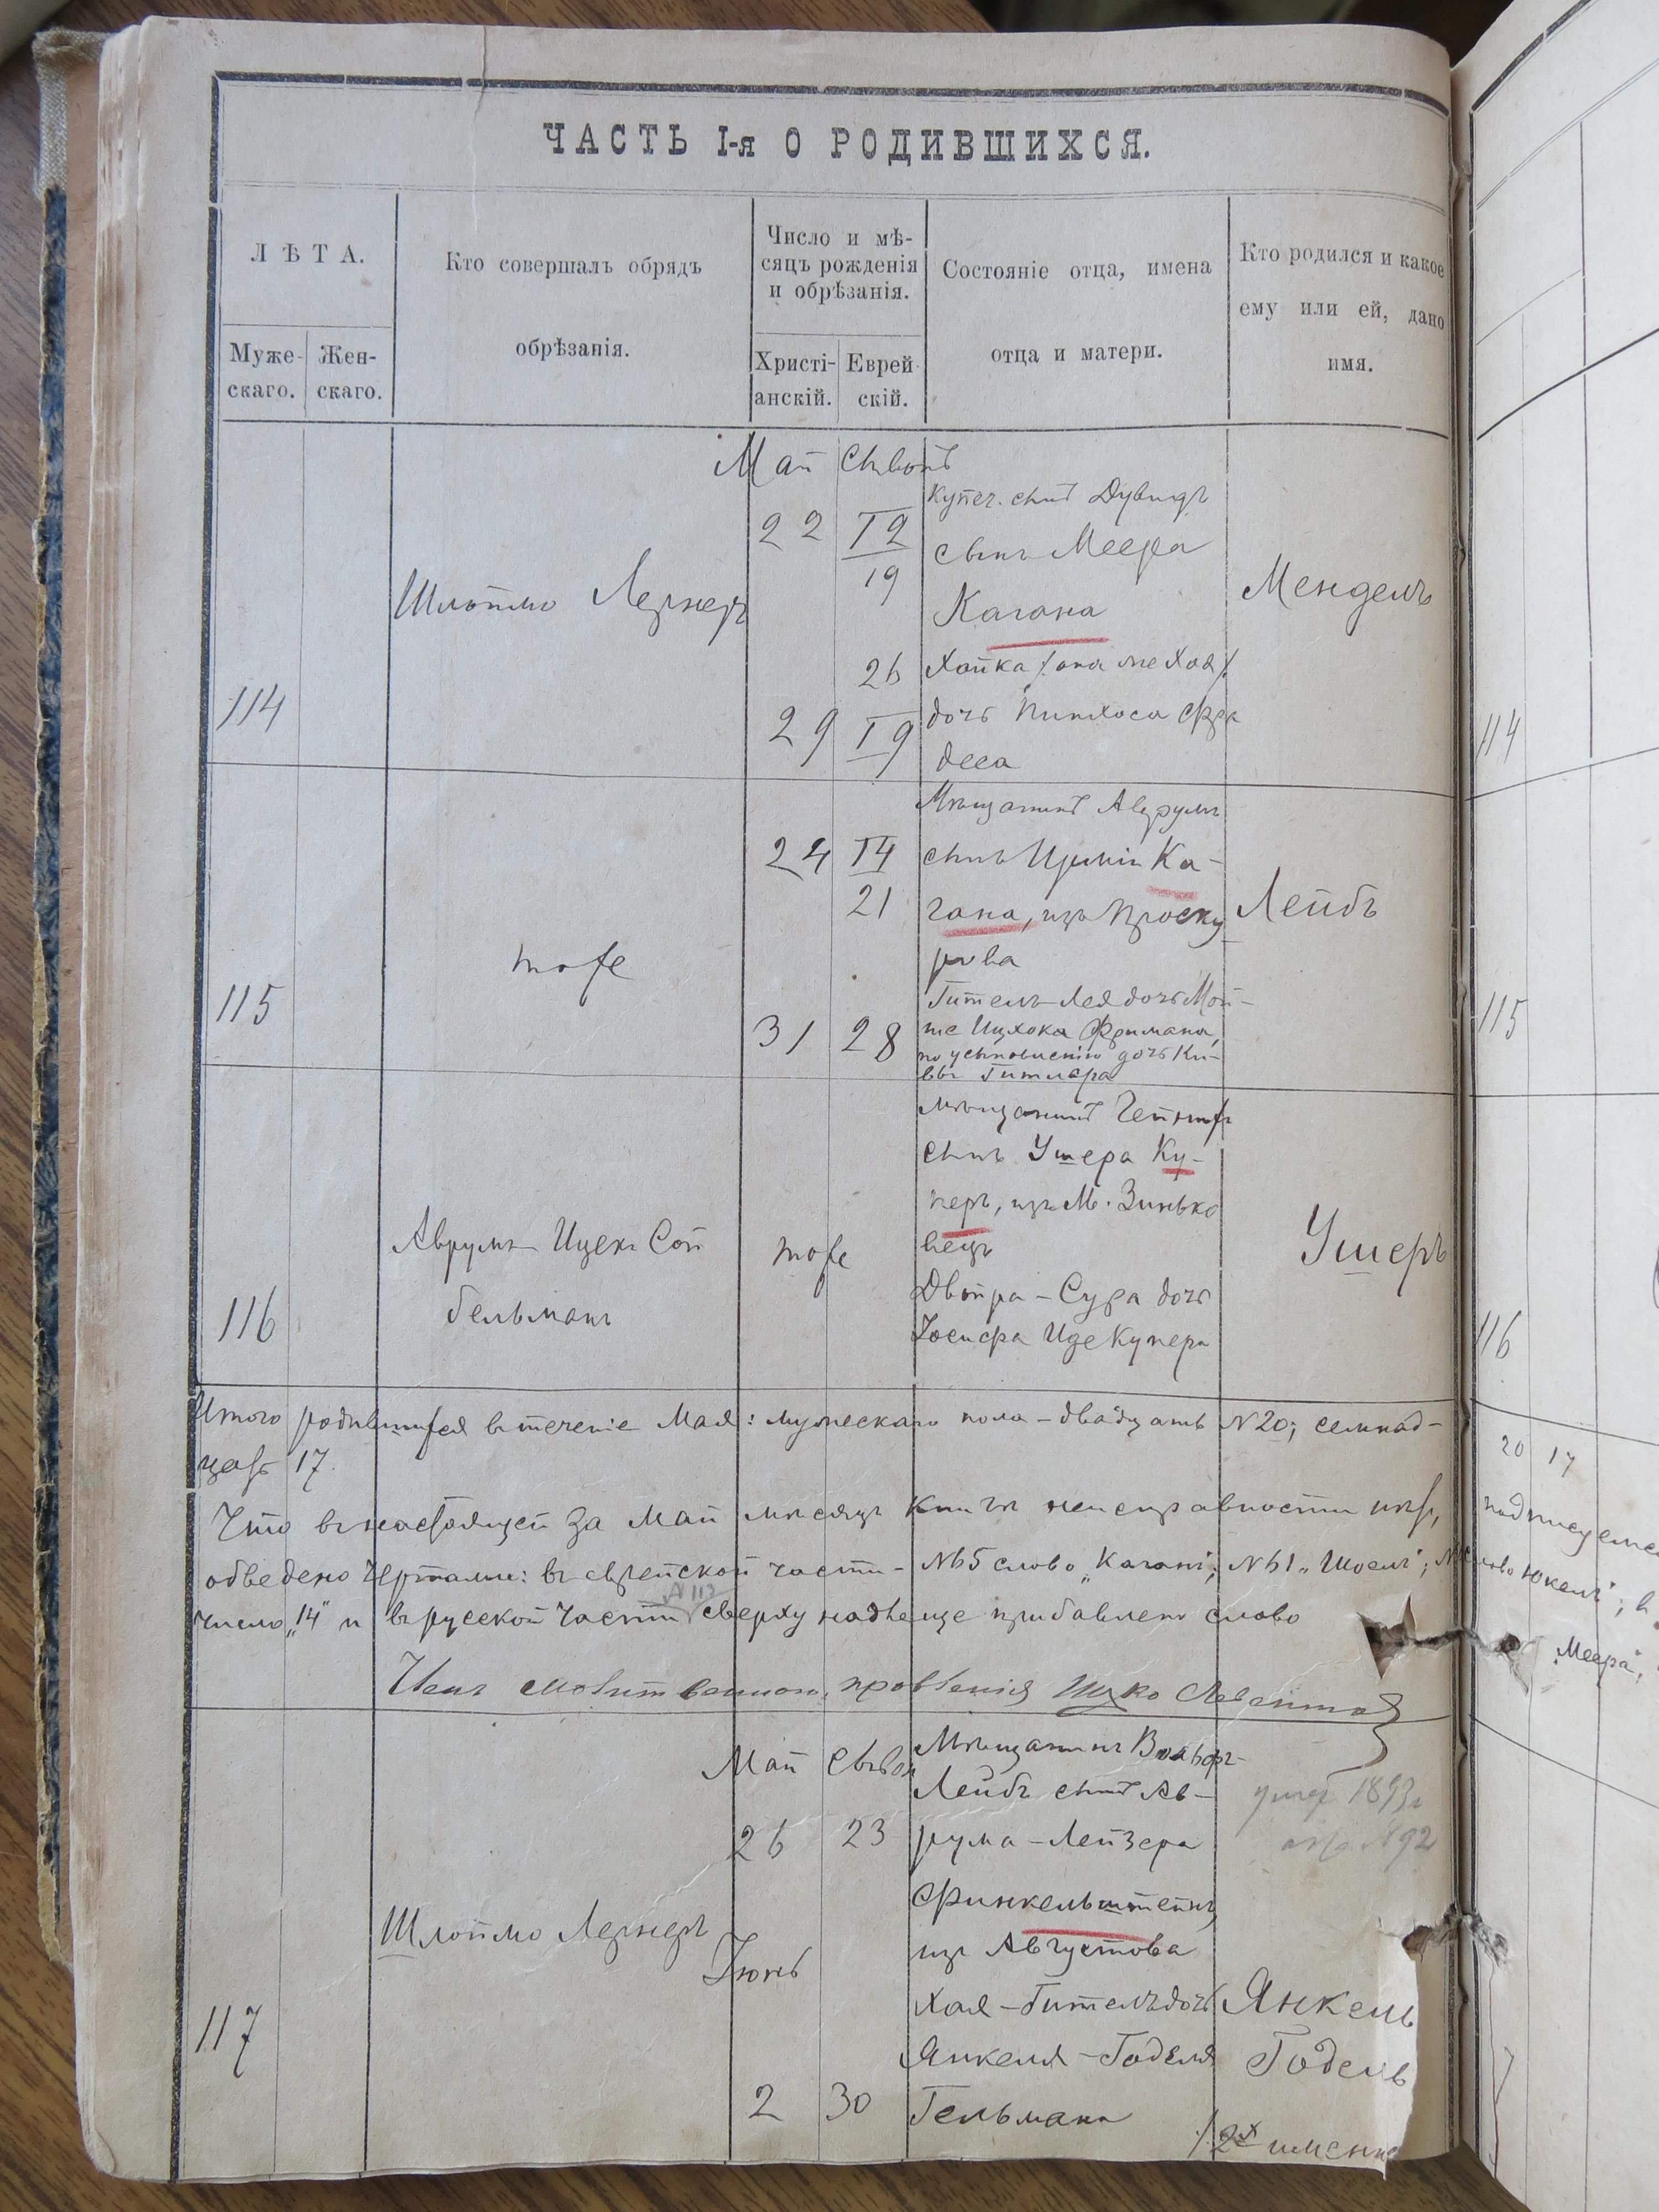 ЧАСТЬ I-я О РОДИВШИХСЯ.
ЛѢТА.
Муже-
скаго.
Жен-
скаго.
Кто совершалъ обрядъ
обрѣзанія.
Число и мѣ-
сяцъ рожденія
и обрѣзанія.
Христі-
анскій.
Еврей
скій.
Состояніе отца, имена
отца и матери.
Кто родился и какое
ему или ей, дано
имя.
114
Шлоймо Лернеръ
Май Сывонъ
22
12
19
26
29 19
Купеч. сынъ Дувидъ
сынъ Меера
Кагана
Хайка /. она же Хая /.
дочь Пинхоса
Мендель
114
115
тоже
24 14
21
31 28
Мѣщанинъ Аврумъ
сынъ Ка-
гана, изъ Проску
рова
Гитель-Лея дочь Мой-
ше Ицхока Фримана,
по усыновленію дочь Ки-
вы Гитлера
Лейбъ
115
116
Аврумъ Ицекъ Сой
бельманъ
тоже
Мѣщанинъ
сынъ Ушера Ку-
перъ, изъ М. Зинько
вецъ
Двойра-Сура дочь
Іосифа Иде Купера
Ушеръ
116
Итого родившихся въ теченіе Мая: мужескаго пола - двадцать №20; семнад-
цать 17.
20 17
Что въ настоящей за Май мѣсяцъ книгѣ неисправности
обведено чертами: въ еврейской части - слово „Каганъ";
число „14" и въ русской части №113 сверху прибавлено слово
„Меера",
Членъ молитвеннаго правленія
117
Шлоймо Лернеръ
Май
26 23
Іюнь
2 30
Мѣщанинъ Вольфъ-
Лейбъ сынъ Ав-
рума-Лейзера
Финкельштейнъ,
изъ Августова
Хая-Гитель дочь
Янкеля-Годеля
Гельмана
умер 1893г
№92
Янкель
Годель
/2хъ